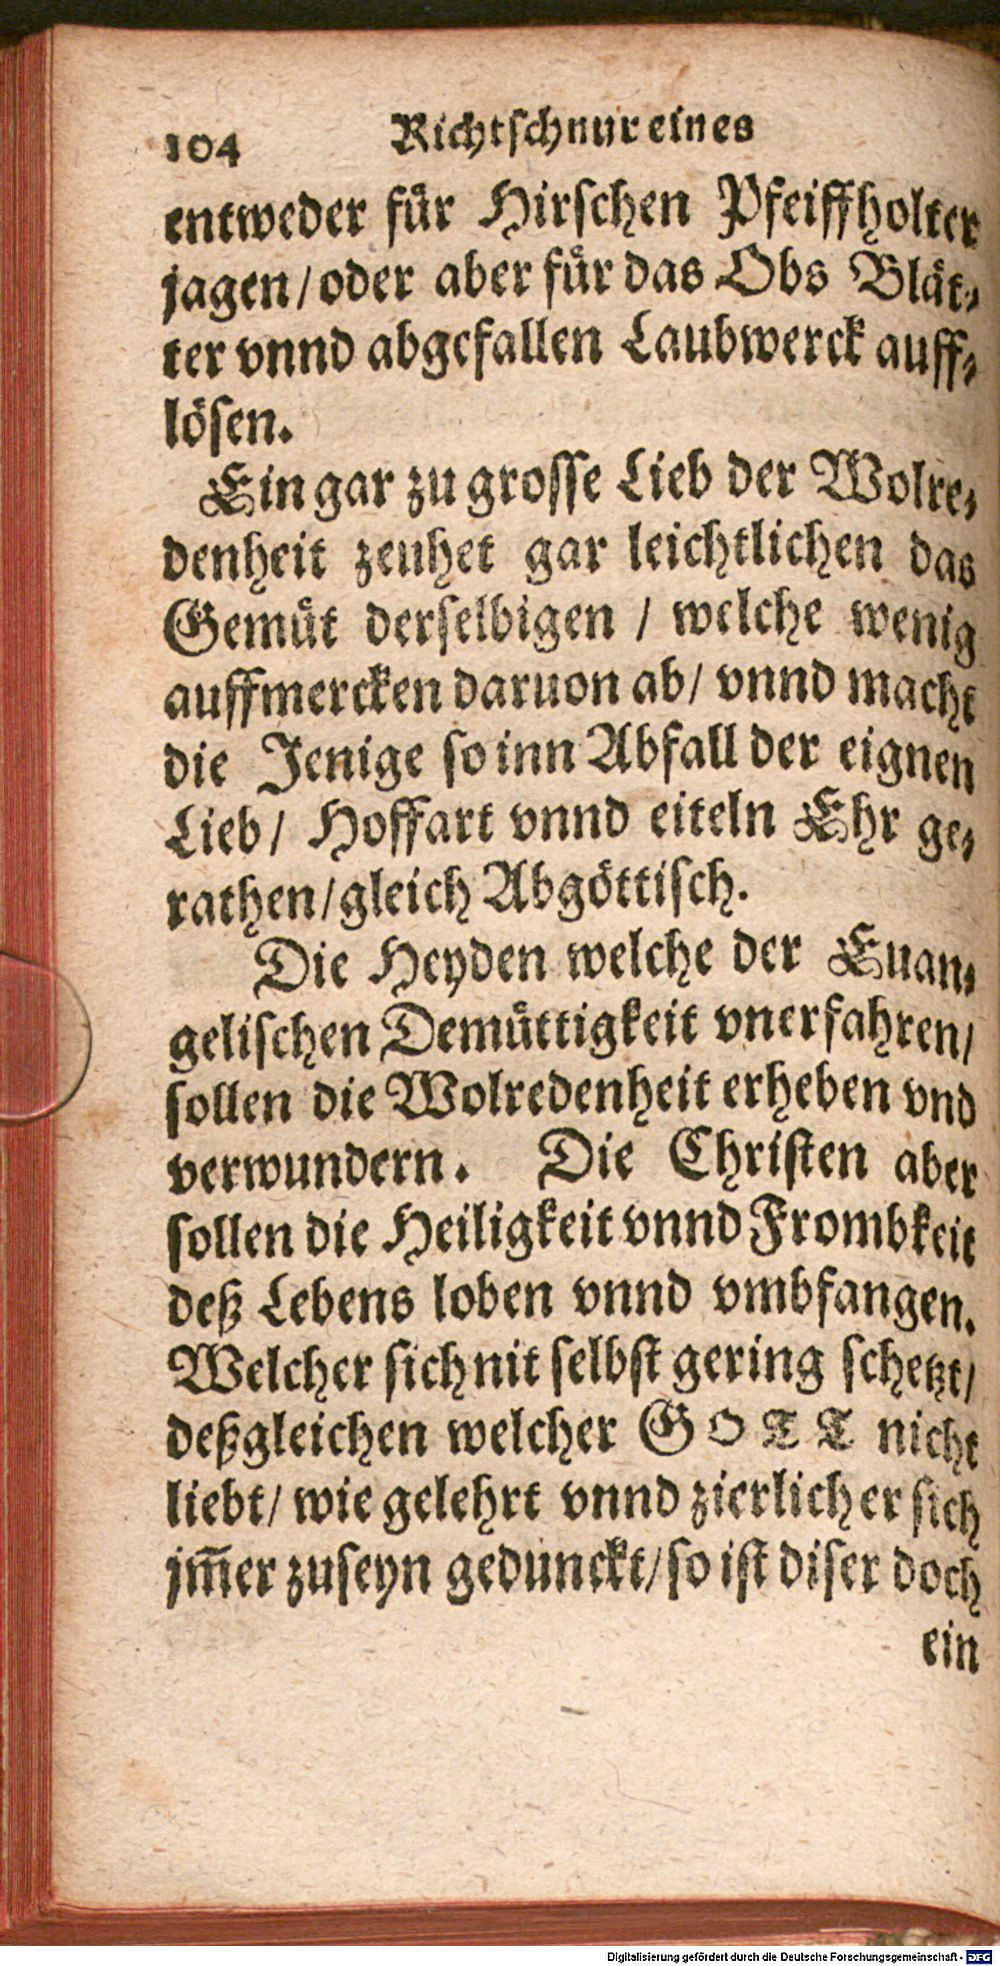 104 Richtschnur eines
entweder für Hirschen Pfeiffholter
jagen / oder aber für das Obs Blät-
ter vnnd abgefallen Laubwerck auff-
lösen.
Ein gar zu grosse Lieb der Wolre-
denheit zeuhet gar leichtlichen das
Gemüt derselbigen / welche wenig
auffmercken daruon ab / vnnd macht
die Jenige so inn Abfall der eignen
Lieb / Hoffart vnnd eiteln Ehr ge-
rathen / gleich Abgöttisch.
Die Heyden welche der Euan-
gelischen Demüttigkeit vnerfahren /
sollen die Wolredenheit erheben vnd
verwundern. Die Christen aber
sollen die Heiligkeit vnnd Frombkeit
deß Lebens loben vnnd vmbfangen.
Welcher sich nit selbst gering schetzt /
deßgleichen welcher GOTT nicht
liebt / wie gelehrt vnnd zierlich er sich
jm̄er zuseyn gedunckt / so ist diser doch
ein
Digitalisierung gefördert durch die Deutsche Forschungsgemeinschaft - DFG